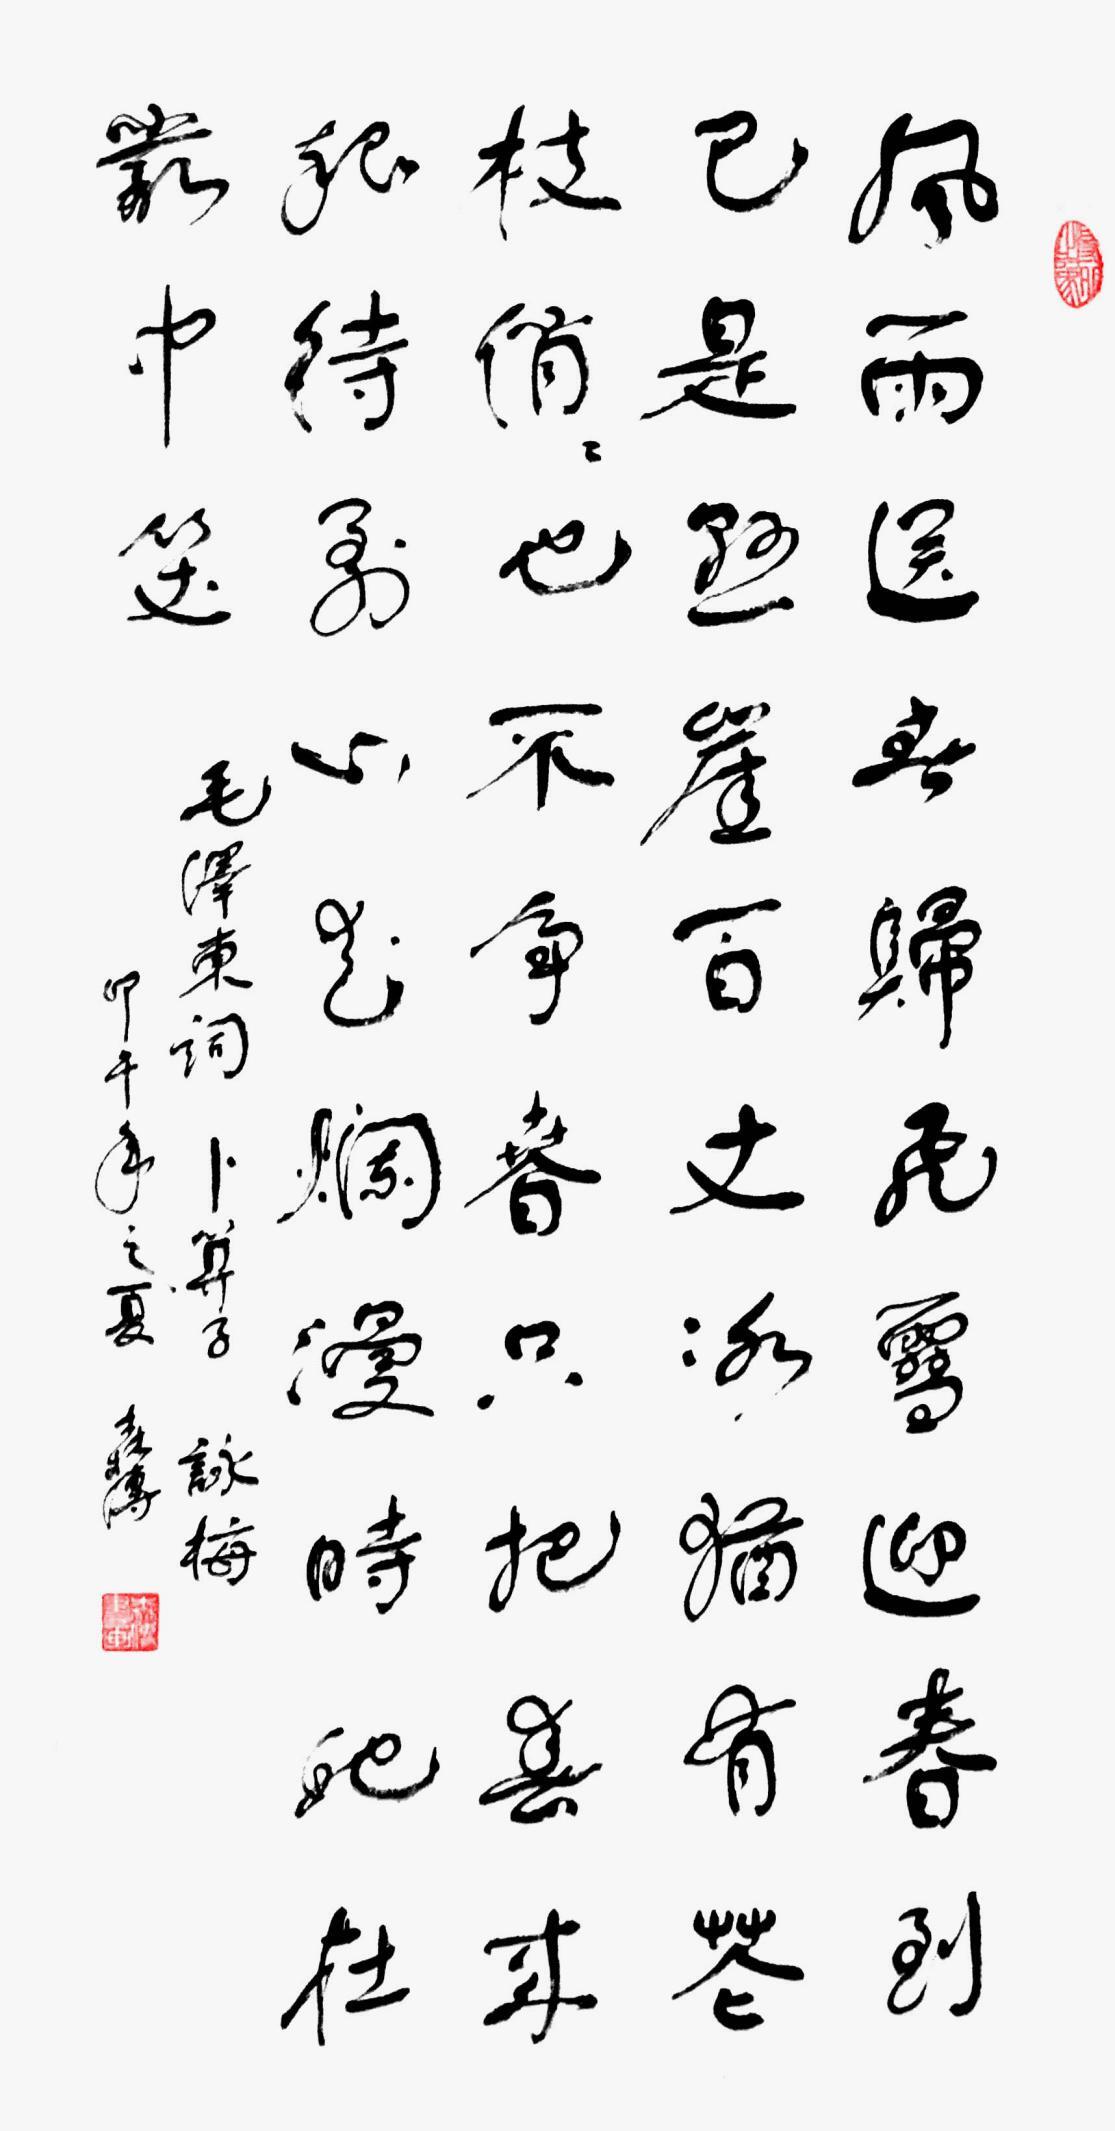 風雨送春歸飛雪迎春到
已是懸崖百丈冰猶有花
枝俏々也不争春只把春来
報待到山花爛漫時她在
叢中笑
毛澤東詞 卜算子 詠梅
甲午年之夏